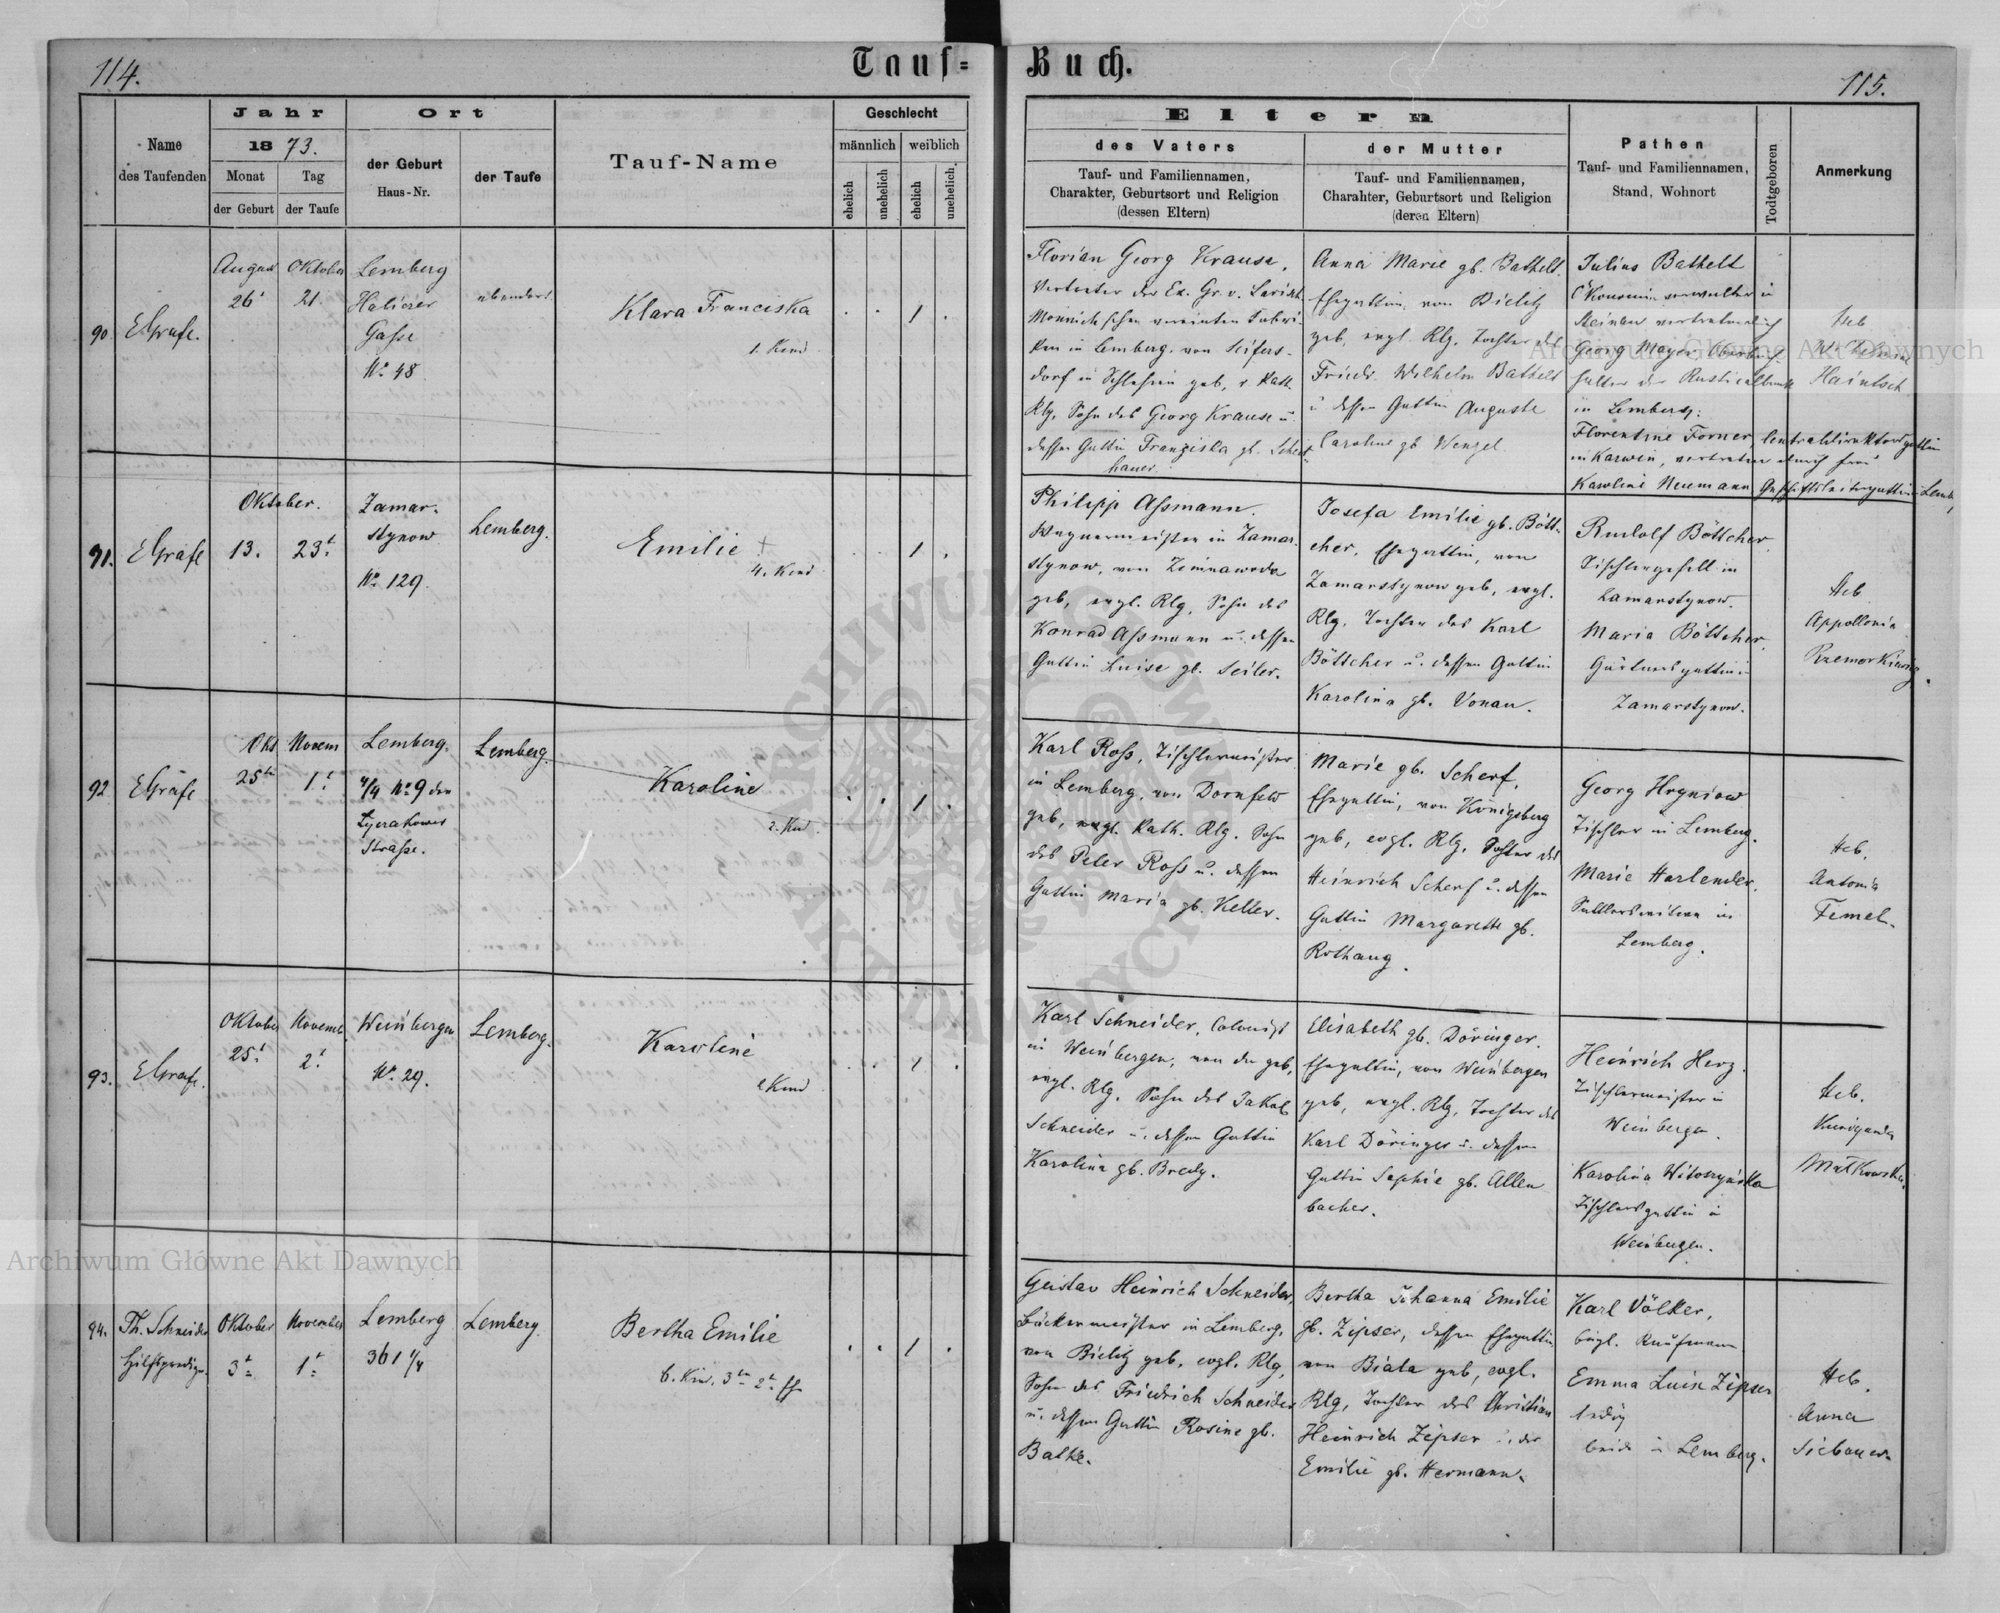 114.
Tauf-
Buch.
115.
Name
des Taufenden
Jahr
1873.
Monat
der Geburt
Tag
der Taufe
Ort
der Geburt
Haus-Nr.
der Taufe
Tauf-Name
Geschlecht
männlich
weiblich
ehelich
unehelich
ehelich
unehelich
Eltern
des Vaters
Tauf- und Familiennamen,
Charakter, Geburtsort und Religion
(dessen Eltern)
der Mutter
Tauf- und Familiennamen,
Charahter, Geburtsort und Religion
(deren Eltern)
Pathen
Tauf- und Familiennamen,
Stand, Wohnort
Todtgeboren
Anmerkung
90.
EGrafe.
August
26
Oktober
21.
Lemberg
Halicer
Gasse
No 48
Klara Franciska
1. Kind
Florian Georg Krause,
in Lemberg, von Seifers-
dorf in Schlesien geb, r. kath.
Rlg, Sohn des Georg Krause u.
dessen Gattin Franziska gb.
hauer.
Anna Marie gb. Bathelt
Ehegattin von Bielitz
geb, evgl. Rlg, Tochter des
Friedr. Wilhelm Bathelt
u dessen Gattin Auguste
Caroline gb Wenzel.
Julius Bathelt
Georg Mayer
in Lemberg:
Florentine Forner, Centraldirektorsgattin
in Karwin, vertreten durch Frau
Karoline Neumann
Heb
Haintsch
91.
EGrafe
Oktober.
13.
23t
Zamar-
stynow
No 129.
Lemberg.
Emilie †
4. Kind
Philipp Aßmann.
Wagnermeister in Zamar-
stynow, von Zimnawoda
geb, evgl. Rlg, Sohn des
Konrad Aßmann u. dessen
Gattin Luise gb. Seiler.
Josefa Emilie gb. Bött-
cher, Ehegattin, von
Zamarstynow geb, evgl.
Rlg. Tochter des Karl
Böttcher u. dessen Gattin
Karolina gb. Vonau.
Rudolf Böttcher,
Tischlergesell in
Zamarstynow.
Maria Böttcher,
Gärtnersgattin in
Zamarstynow.
Heb
Appollonia
92
EGrafe
Okt
25ten
Novem
1t
Lemberg.
4/4 No 9 der
Straße.
Lemberg.
Karoline
2. Kind.
Karl Roß, Tischlermeister
in Lemberg, von Dornfeld
geb, kath. Rlg. Sohn
des Peter Roß u. dessen
Gattin Maria gb. Keller.
Marie gb. Scherf,
Ehegattin, von Königsberg
geb, evgl. Rlg. Tochter des
Heinrich Scherf u. dessen
Gattin Margarethe gb.
Rothaug.
Georg Hryniow
Tischler in Lemberg.
Marie Harlender.
in
Lemberg.
Heb.
Antonia
Femel.
93.
EGrafe.
Oktober
25t
Novemb.
2t
Weinbergen
No. 29.
Lemberg.
Karoline
Kind
Karl Schneider, Colonist
in Weinbergen, von da geb,
evgl. Rlg. Sohn des Jakob
Schneider u. dessen Gattin
Karolina gb. Bredy.
Elisabeth gb. Döringer.
Ehegattin, von Weinbergen
geb, evgl. Rlg, Tochter des
Karl Döringer u. dessen
Gattin Sophie gb. Allen
bacher.
Heinrich Herz.
Tischlermeister in
Weinbergen.
Karolina Witoszyńska
Tischlersgattin in
Weinbergen.
Heb.
Kunigunda
Mutkowska.
94.
Th. Schneider
Hilfsprediger.
Oktober
3t
November
1t
Lemberg
361 4/4
Lemberg.
Bertha Emilie
6. Kind. 3tes 2t Eh
Gustav Heinrich Schneider,
Bäckermeister in Lemberg,
von Bielitz geb, evgl. Rlg,
Sohn des Friedrich Schneider
u. dessen Gattin Rosine gb.
Bathe.
Bertha Johanna Emilie
gb. Zipser, dessen Ehegattin,
von Biala geb, evgl.
Rlg, Tochter des Christian
Heinrich Zipser u. der
Emilie gb. Hermann.
Karl Völker,
bügl. Kaufmann
Emma Luise Zipser
ledig
beide in Lemberg.
Heb.
Anna
Archiwum Główne Akt Dawnych
Archiwum Główne Akt Dawnych